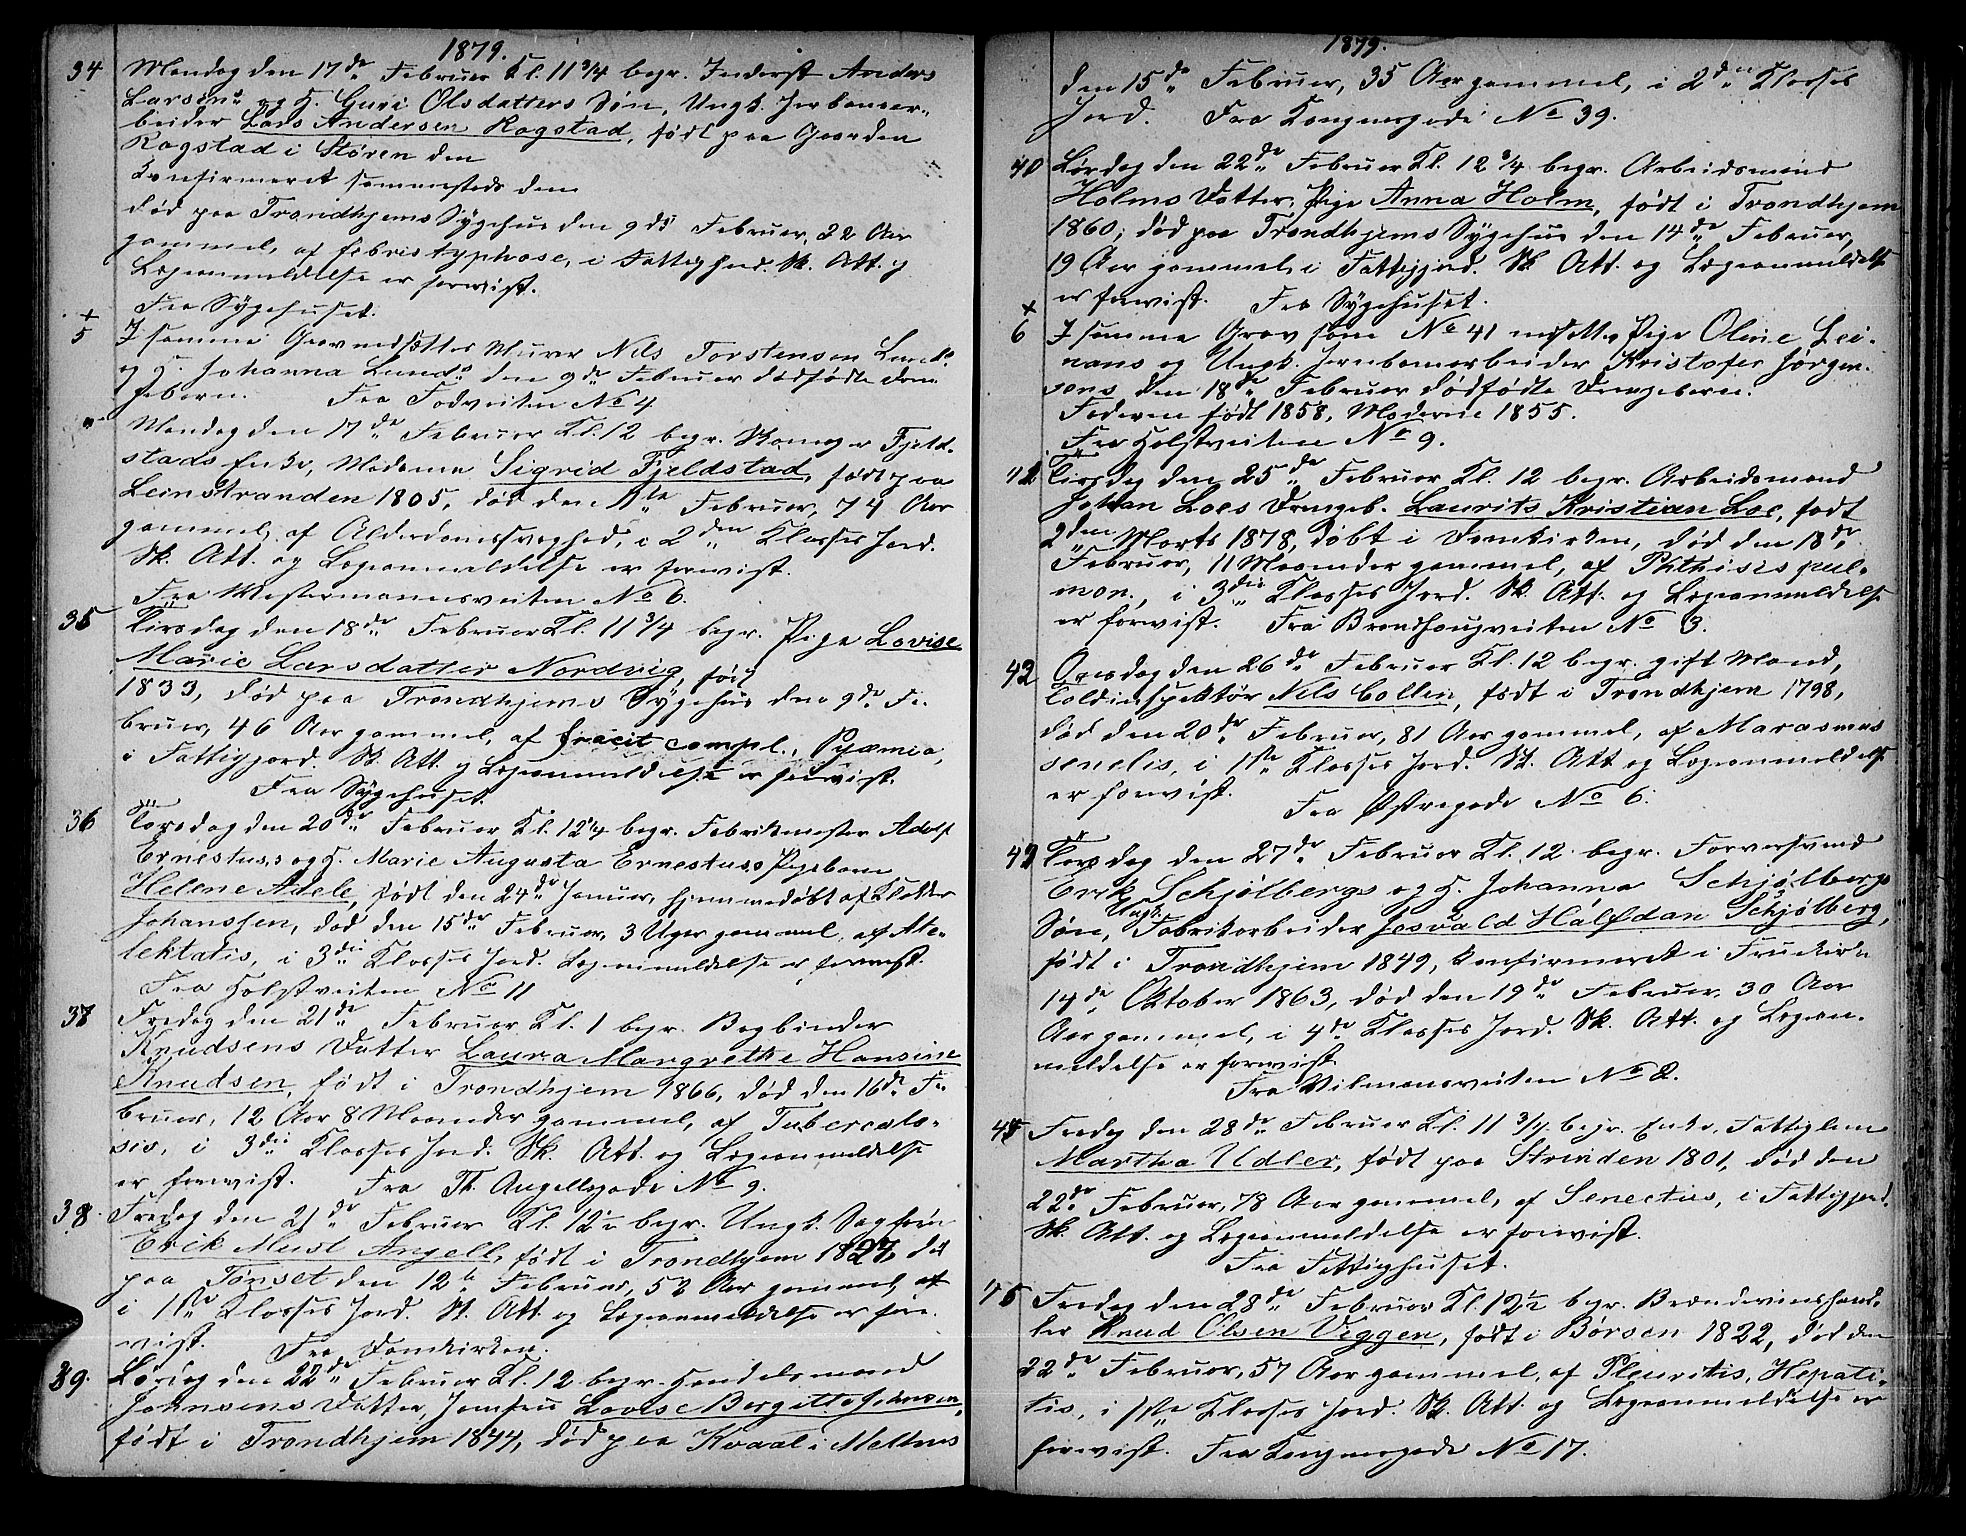 1879.
34 Mandag den 17de Februar Kl. 11 3/4 begr. Inderst Anders
Larsens og H. Guri Olsdatters Søn, Ungk. Jernbanear-
beider Lars Andersen Rogstad, født paa Gaarden
Rogstad i Støren den
Konfirmeret sammesteds den
død paa Trondhjems Sygehus den 9de Februar, 22 Aar
gammel, af febris typhose, i Fattigjord. Sk. Att. og
Lægeanmeldelse er forevist.
Fra Sygehuset.
+
5 I samme Grav nedsættes Murer Nils Torstensen Lunds
og H. Johanna Lunds den 9de Februar dødfødte Dren-
gebarn. Fra Fodveiten No 4
" Mandag den 17de Februar Kl. 12 begr. Skomager Fjeld-
stads Enke, Madame Sigrid Fjeldstad, født paa
Leinstranden 1805, død den 11te Februar, 74 Aar
gammel, af Alderdomssvaghed, i 2den Klasses Jord.
Sk. Att. og Lægeanmeldelse er forevist.
Fra Westermannsveiten No 6.
35 Tirsdag den 18de Februar Kl. 11 3/4 begr. Pige Lovise
Marie Larsdatter Nordvig, født
1833, død paa Trondhjems Sygehus den 9de Fe-
bruar, 46 Aar gammel, af fracit compl., Pyæmia,
i Fattigjord. Sk. Att. og Lægeanmeldelse er forevist.
Fra Sygehuset.
36 Torsdag den 20de Februar Kl. 12 1/4 begr. Fabrikmester Adolf
Ernestuss og H. Marie Augusta Ernestuss Pigebarn
Helene Adele, født den 24de Januar, hjemmedøbt af Klokker
Johanssen, død den 15de Februar, 3 Uger gammel, af Ate-
lektatis, i 3die Klasses Jord. Lægeanmeldelse er forevist.
Fra Holstveiten No 11
37 Fredag den 21de Februar Kl. 1 begr. Bogbinder
Knudsens Datter Laura Margrethe Hansine
Knudsen, født i Trondhjem 1866, død den 16de Fe-
bruar, 12 Aar 8 Maaneder gammel, af Tubercalo-
sis, i 3die Klasses Jord. Sk. Att. og Lægeanmeldelse
er forevist. Fra Th. Angellsgade No 9.
38. Fredag den 21de Februar Kl. 12 1/2 begr. Ungk. Sagfører
Erik Must Angell, født i Trondhjem 1827, død
paa Tønset den 12te Februar, 52 Aar gammel, af
i 1ste Klasses Jord. Sk. Att. og Lægeanmeldelse er fore-
vist. Fra Domkirken.
39. Lørdag den 22de Februar Kl. 12 begr. Handelsmand
Johnsens Datter, Jomfru Lovise Bergitte Johnsen,
født i Trondhjem 1844, død paa Kvaal i Melhus
1879.
den 15de Februar, 35 Aar gammel, i 2den Klasses
Jord. Fra Kongensgade No 39.
40 Lørdag den 22de Februar Kl. 12 3/4 begr. Arbeidsmand
Holms Datter, Pige Anna Holm, født i Trondhjem
1860, død paa Trondhjems Sygehus den 14de Februar,
19 Aar gammel, i Fattigjord. Sk. Att. og Lægeanmeldelse
er forevist. Fra Sygehuset.
+
6 I samme Grav som No 41 nedsattes Pige Oline Lei-
nans og Ungk. Jernbanearbeider Kristofer Jørgen-
sens den 18de Februar dødfødte Drengebarn.
Faderen født 1858, Moderen 1855.
Fra Holstveiten No 9.
41 Tirsdag den 25de Februar Kl. 12 begr. Arbeidsmand
Johan Loes Drengeb. Laurits Kristian Loe, født
2den Marts 1878, døbt i Domkirken, død den 18de
Februar, 11 Maaneder gammel, af Phthisis pul-
mon., i 3die Klasses Jord. Sk. Att. og Lægeanmeldelse
er forevist. Fra Brandhaugveiten No 3.
42 Onsdag den 26de Februar Kl. 12 begr. gift Mand,
Toldinspektør Nils Collin, født i Trondhjem 1798,
død den 20de Februar, 81 Aar gammel, af Marasmus
senelis, i 1ste Klasses Jord. Sk. Att og Lægeanmeldelse
er forevist. Fra Østregade No 6.
43 Torsdag den 27de Februar Kl. 12 begr. Farversvend
Erik Schjølbergs og H. Johanna Schjølbergs
Søn, Ungk. Fabrikarbeider Josvald Halfdan Schjølberg,
født i Trondhjem 1849, konfirmeret i Fruekirke
14de Oktober 1863, død den 19de Februar, 30 Aar
Aar gammel, i 4de Klasses Jord. Sk. Att. og Lægean-
meldelse er forevist
Fra Vilmansveiten No 2.
44 Fredag den 28de Februar Kl. 11 3/4 begr. Enke, Fattiglem
Martha Udler, født paa Strinden 1801, død den
22de Februar, 78 Aar gammel, af Senectus, i Fattigjord.
Sk. Att. og Lægeanmeldelse er forevist.
Fra Fattighuset.
45 Fredag den 28de Februar Kl 12 1/2 begr. Brændevinshand-
ler Knud Olsen Viggen, født i Børsen 1822, død den
22de Februar, 57 Aar gammel, af Pleuritis, Hepati-
tis, i 1ste Klasses Jord. Sk. Att. og Lægeanmeldelse er
forevist. Fra Kongensgade No 17.